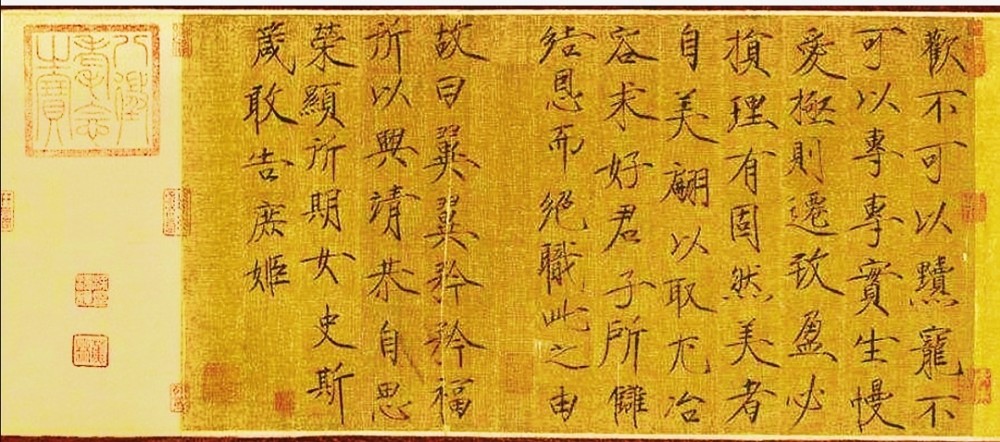 歡不可以黷寵不
可以專專實生慢
愛極則遷致盈必
損理有固然美者
自美翩以取尤冶
容求好君子所讎
結恩而絕職此之由
故曰翼翼矜矜福
所以興靖恭自思
榮顯所期女史斯
箴敢告庶姬
八徵
耄念
之寶